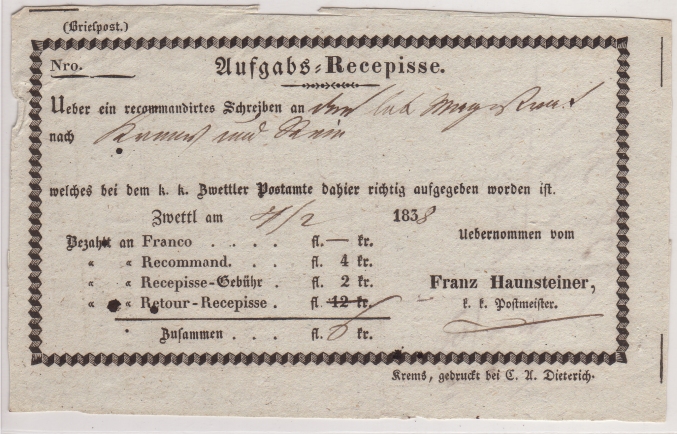 (Briefpost.)
Nro.
Aufgabs-Recepisse.
Ueber ein recommandirtes Schreiben an den löb Magistrat
nach Krems und Stein
welches bei dem k. k. Zwettler Postamte dahier richtig aufgegeben worden ist.
Zwettl am 4/2 1838
Bezahlt an Franco . . . . fl. — kr.
„ „ Recommand. . . . fl. 4 kr.
„ „ Recepisse-Gebühr . fl. 2 kr.
„ „ Retour-Recepisse . fl. 12 kr.
Zusammen . . . fl. 6 kr.
Uebernommen vom
Franz Haunsteiner,
k. k. Postmeister.
Krems, gedruckt bei C. A. Dieterich.